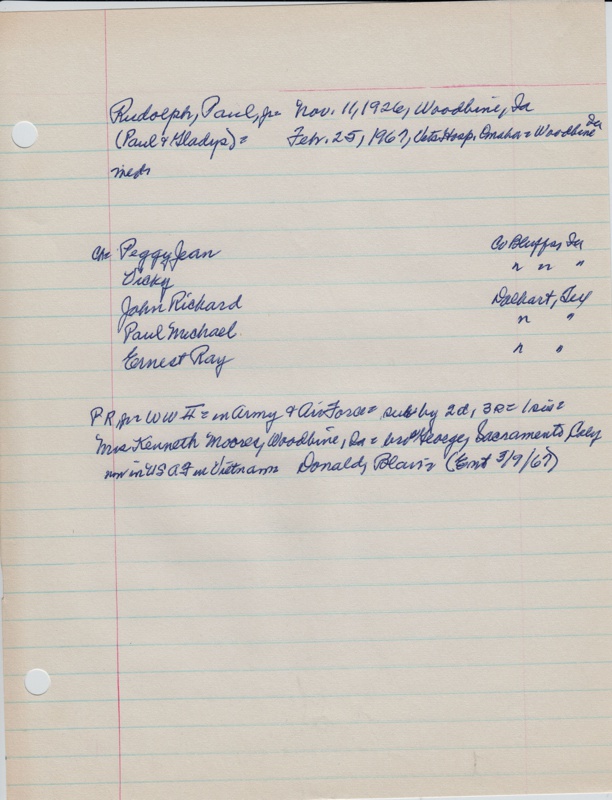 Rudolph, Paul, Jr= Nov. 11, 1926, Woodbine, Ia
(Paul & Gladys)= Febr. 25, 1967, Vets Hosp. Omaha = Woodbine Ia
med
Ch= Peggy Jean Co Bluffs, Ia
Vicky " " "
John Richard Dalhart, Tex
Paul Michael " "
Ernest Ray " "
P R Jr= WW II = in Army & Air Force = sub by 2d, 3s = 1 sis =
Mrs Kenneth Moores, Woodbine, Ia = bro George, Sacramento, Calif
now in USAF in Vietnam Donald, Blair= (Ent 3/9/67)